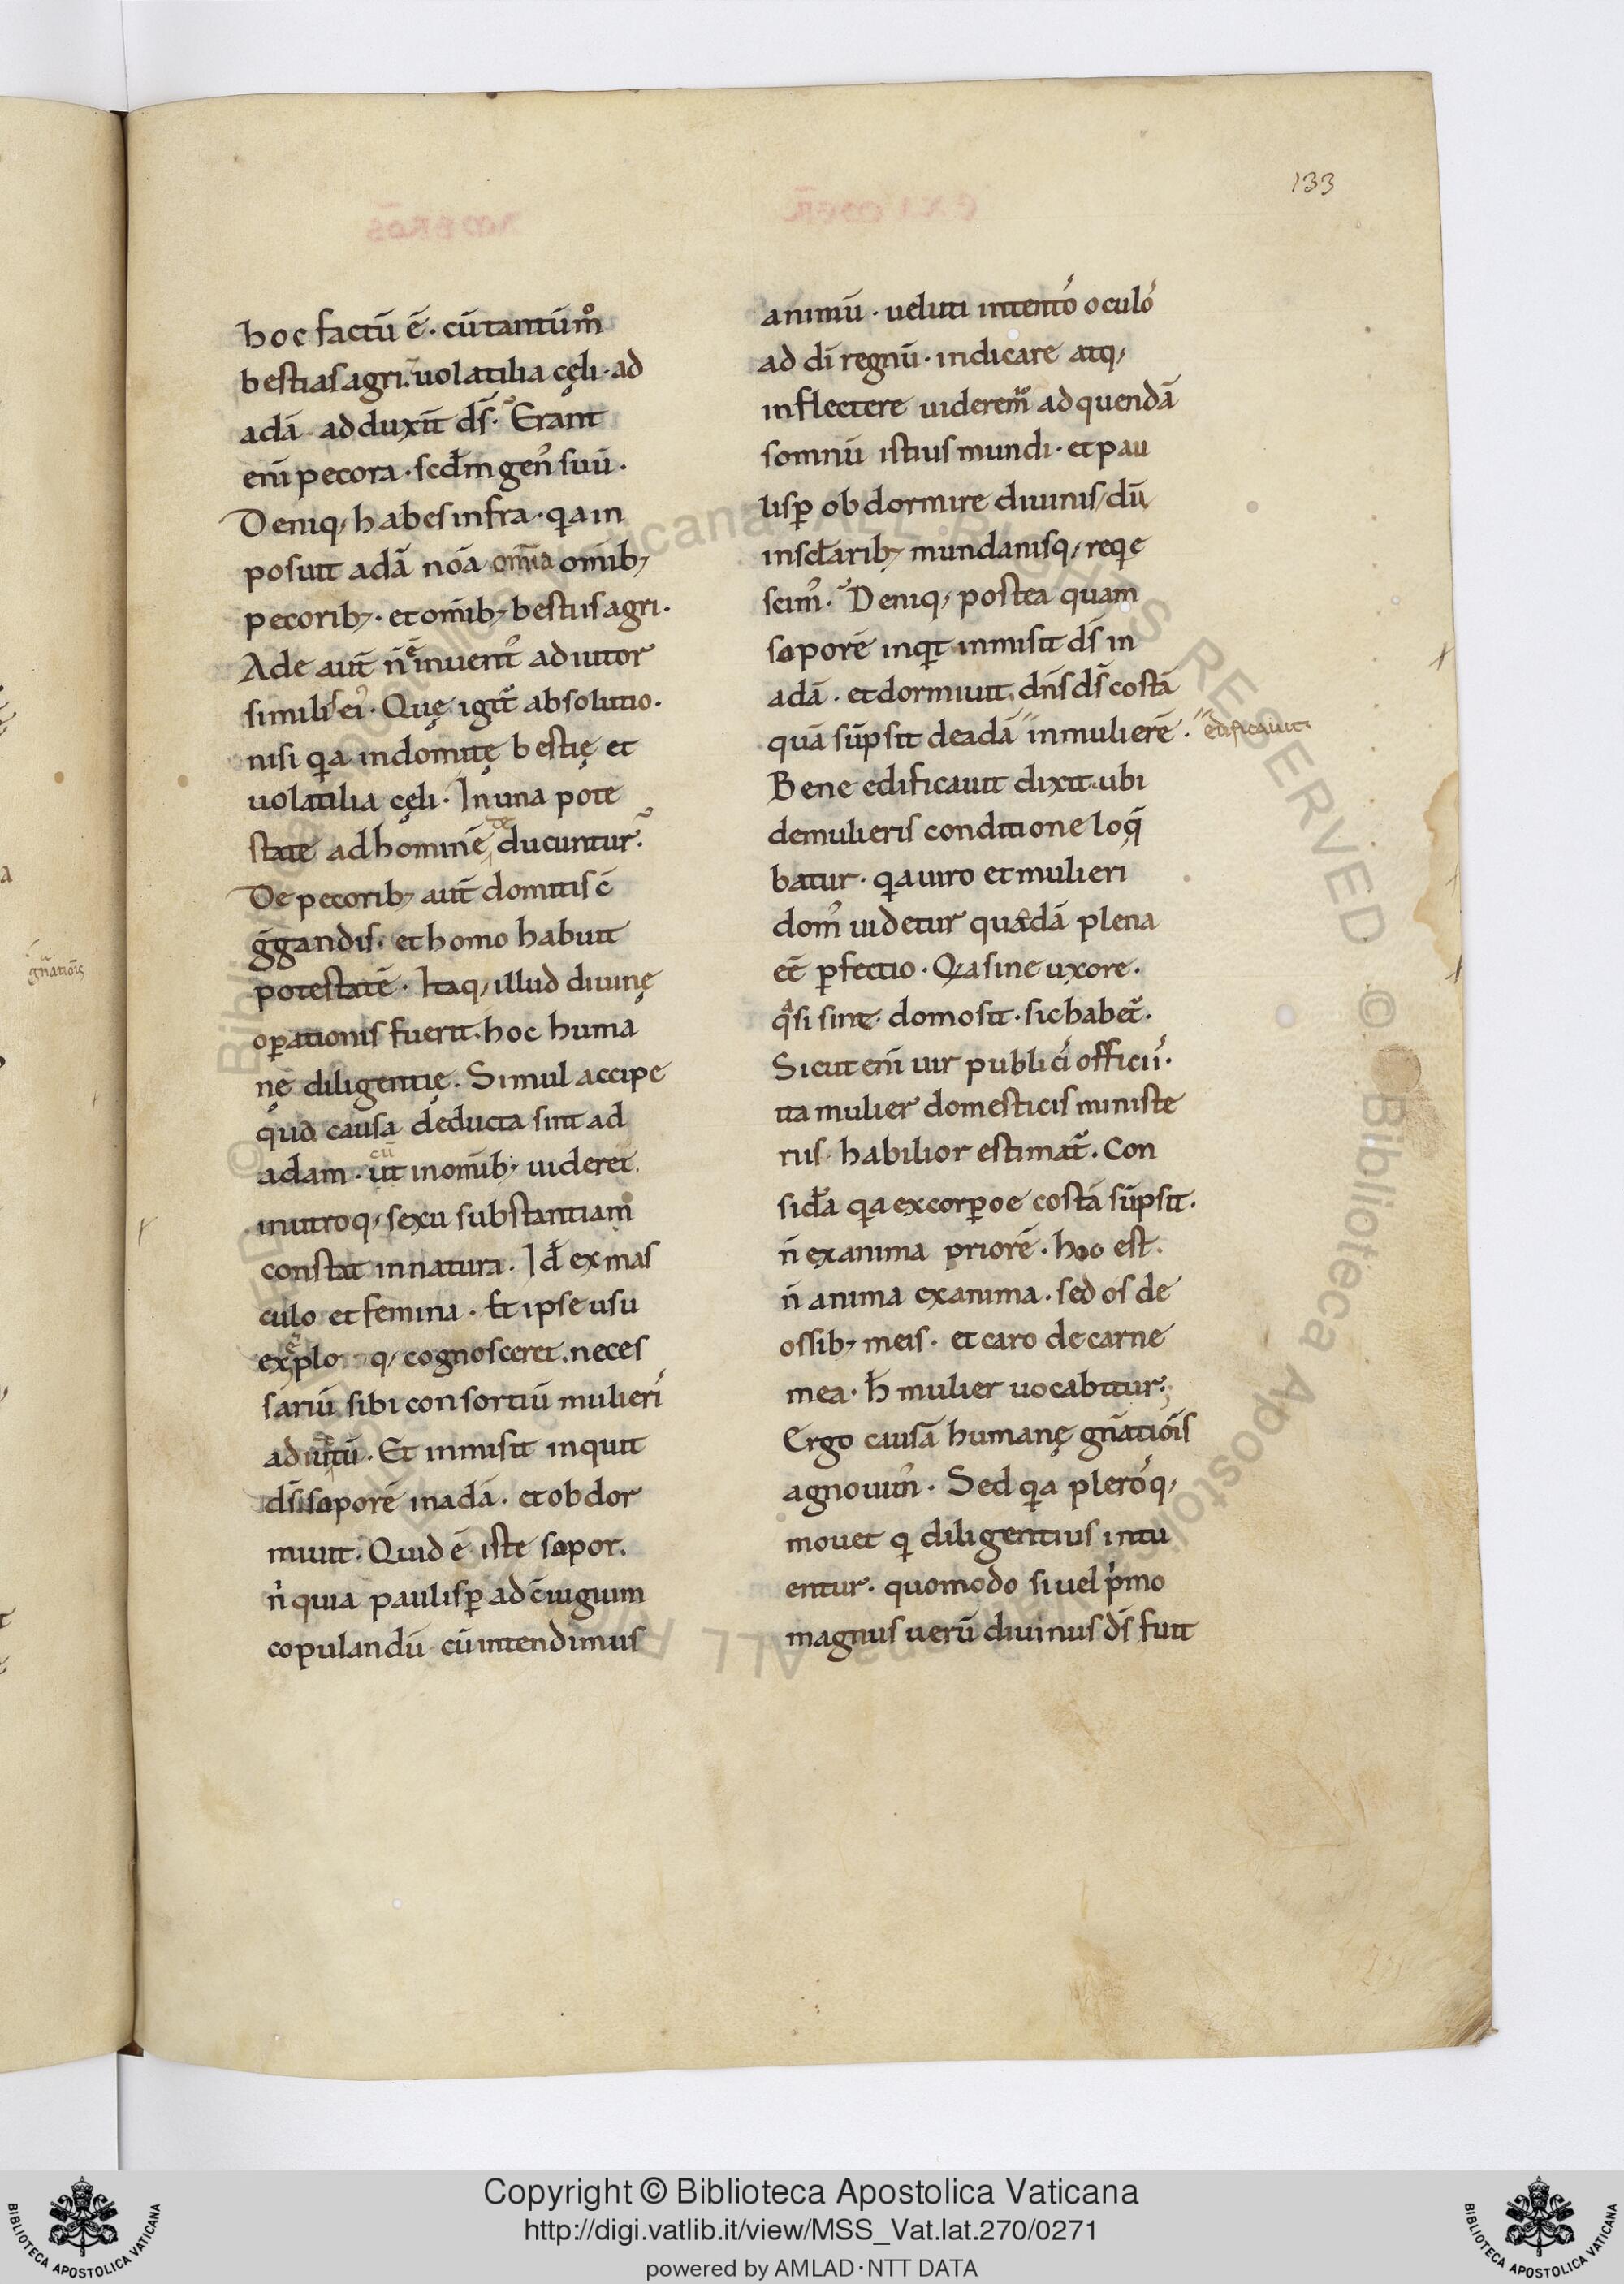 133
hoc factū ē · cū tantūm̊
bestias agri. uolatilia cęli · ad
adā adduxit d̄s · Erant
eni᷈ pecora · scd̄m gen᷒ suū ·
Deniq; habes infra · qa in
posuit adā nōa omīa omib;
pecorib; · et omīb; bestiis agri ·
Ade aut̄ n̄ ē inuent᷒ adiutor
similis ei᷒ · Quę igit᷑ absolutio ·
nisi qa indomitę bestię et
uolatilia cęli · In una pote
state ad hominē ducuntur
de
De pecorib; aut̄ domitis c̄
g̅gandis · et homo habuit
potestatē · Itaq; illud diuinę
oꝑationis fuerit · hoc huma
nę diligentię · Simul accipe
quid causa deducta sint ad
adam · ut in omīb; uideret
cū
in utroq; sexu substantiam̊
constat in natura · Id̄ ex mas
culo et femina · Et ipse usu
exēplo q; cognosceret · neces
sariū sibi consortiū mulieri᷒
aditū · Et inmisit inquit
d̄s soporē in adā · et obdor
miuit · Quid ē iste sopor ·
n̄ quia paulisꝑ ad c̄iugium
copulandū cū intendimus
animū · ueluti intento᷒ oculo᷒
ad dī regnū · indicare atq;
inflectere uiderem᷑ ad quendā
somnū istius mundi · et pau
lisꝑ obdormire diuinis / dū
in sclarib; mundanisq; reqe
scim᷒ · Deniq; postea quam
soporē inqt inmisit d̄s in
adā · et dormiuit, dn̄s d̄s costā
quā sūpsit de adā in mulierē ·
edificauit
Bene edificauit dixit · ubi
de mulieris conditione loq̄
batur · qa uiro et muliери
dom᷒ uidetur quādā plena
eē ꝑfectio · Qa sine uxore ·
qᷓsi sine domo sit · sic habet᷑ ·
Sicut eni᷈ uir publici᷒ officii᷒ ·
ita mulier domesticis ministe
riis habilior estimat᷑ · Con
sid̄a qa ex corꝑoe costā sūpsit ·
n̄ ex anima priorē · hoc est ·
n̄ anima ex anima · sed os de
ossib; meis · et caro de carne
mea · h̄ mulier uocabitur ·
Ergo causā humanę gn̄atiōis
agnouim᷒ · Sed qa plero᷒q;
mouet q diligentius intu
entur · quomodo si uel pͥmo
magnus uerū diuinus d̄s fuit
gn̄atiōis
Copyright © Biblioteca Apostolica Vaticana
http://digi.vatlib.it/view/MSS_Vat.lat.270/0271
powered by AMLAD · NTT DATA
BIBLIOTECA APOSTOLICA VATICANA
BIBLIOTECA APOSTOLICA VATICANA